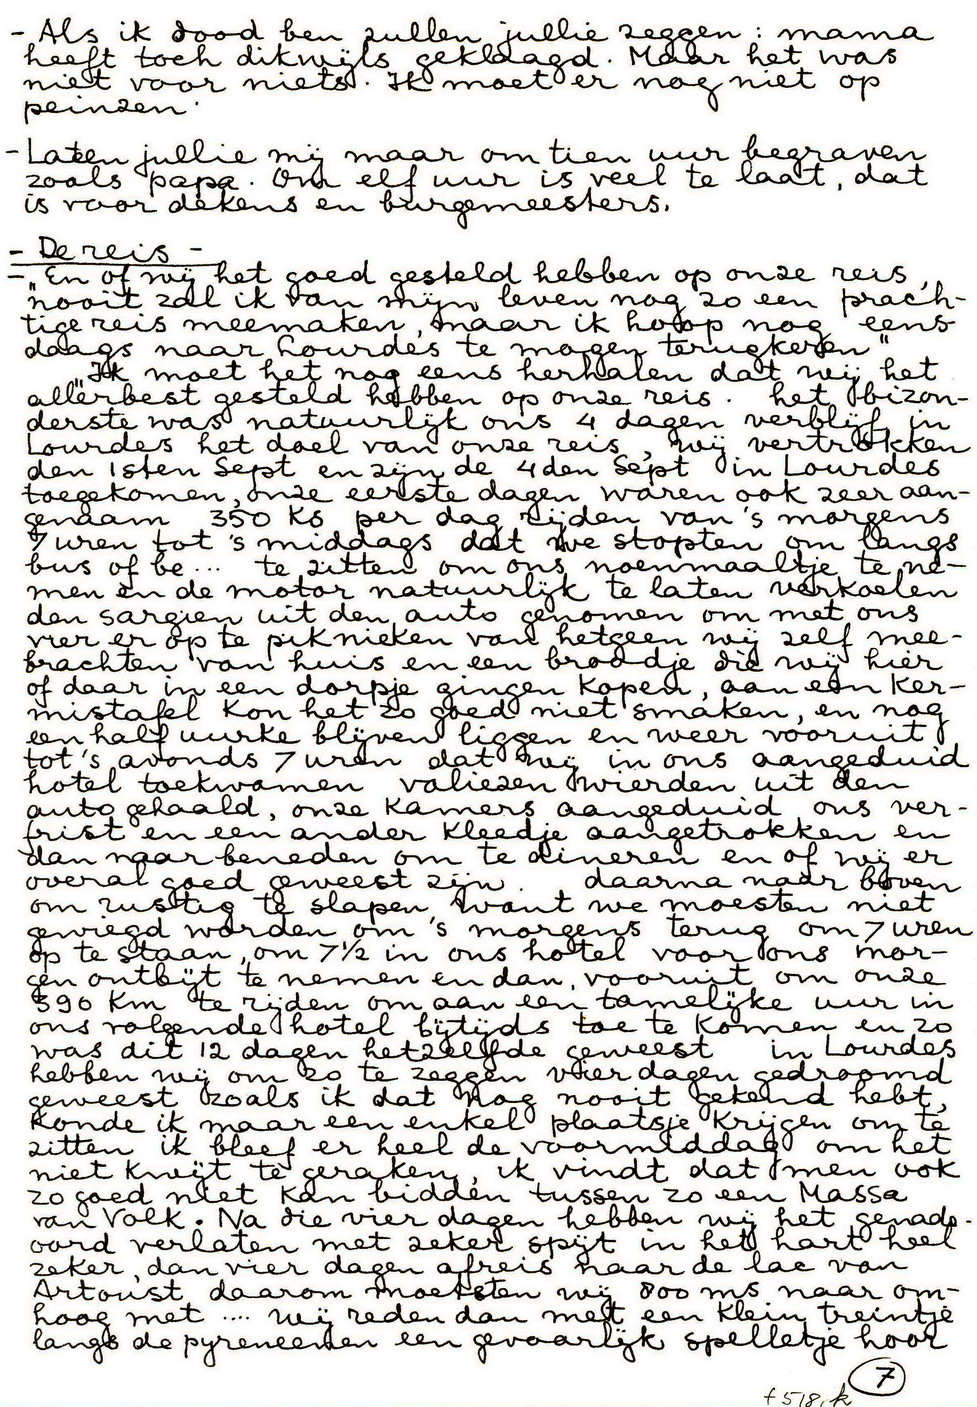 - Als ik dood ben zullen jullie zeggen : mama
heeft toch dikwijls geklaagd. Maar het was
niet voor niets. Ik moet er nog niet op
peinzen.
- Laten jullie mij maar om tien uur begraven
zoals papa. Om elf uur is veel te laat, dat
is voor dekens en burgemeesters.
- De reis -
- "En of wij het goed gesteld hebben op onze reis,
nooit zal ik van mijn leven nog zo een prach-
tige reis meemaken, maar ik hoop nog eens
daags naar Lourdes te mogen terugkeren"
"Ik moet het nog eens herhalen dat wij het
allerbest gesteld hebben op onze reis. het bizon-
derste was natuurlijk ons 4 dagen verblijf in
Lourdes het doel van onze reis, wij vertrokken
den 1sten Sept en zijn de 4den Sept in Lourdes
toegekomen, onze eerste dagen waren ook zeer aan-
genaam 350 Ks per dag rijden van 's morgens
7 uren tot 's middags dat we stopten om langs
bus of be... te zitten om ons noenmaaltje te ne-
men en de motor natuurlijk te laten verkoelen
den sargien uit den auto genomen om met ons
vier er op te piknieken van hetgeen wij zelf mee-
brachten van huis en een broodje die wij hier
of daar in een dorpje gingen kopen, aan een ker-
mistafel kon het zo goed niet smaken, en nog
een half uurke blijven liggen en weer vooruit
tot 's avonds 7 uren dat wij in ons aangeduid
hotel toekwamen valiezen wierden uit den
auto gehaald, onze kamers aangeduid ons ver-
frist en een ander kleedje aangetrokken en
dan naar beneden om te dineren en of wij er
overal goed geweest zijn. daarna naar boven
om rustig te slapen, want we moesten niet
gewiegd worden om 's morgens terug om 7 uren
op te staan, om 7½ in ons hotel voor ons mor-
gen ontbijt te nemen en dan, vooruit om onze
390 Km te rijden om aan een tamelijke uur in
ons volgende hotel bijtijds toe te komen en zo
was dit 12 dagen hetzelfde geweest in Lourdes
hebben wij om zo te zeggen vier dagen gedroomd
geweest zoals ik dat nog nooit gekend hebt,
konde ik maar een enkel plaatsje krijgen om te
zitten ik bleef er heel de voormiddag om het
niet kwijt te geraken, ik vindt dat men ook
zo goed niet kan bidden tussen zo een Massa
van Volk. Na die vier dagen hebben wij het genade-
oord verlaten met zeker spijt in het hart heel
zeker, dan vier dagen afreis naar de lac van
Artoust daarom moesten wij 800 ms naar om-
hoog met .... wij reden dan met een klein treintje
langs de pyreneeën een gevaarlijk spelletje hoor
7